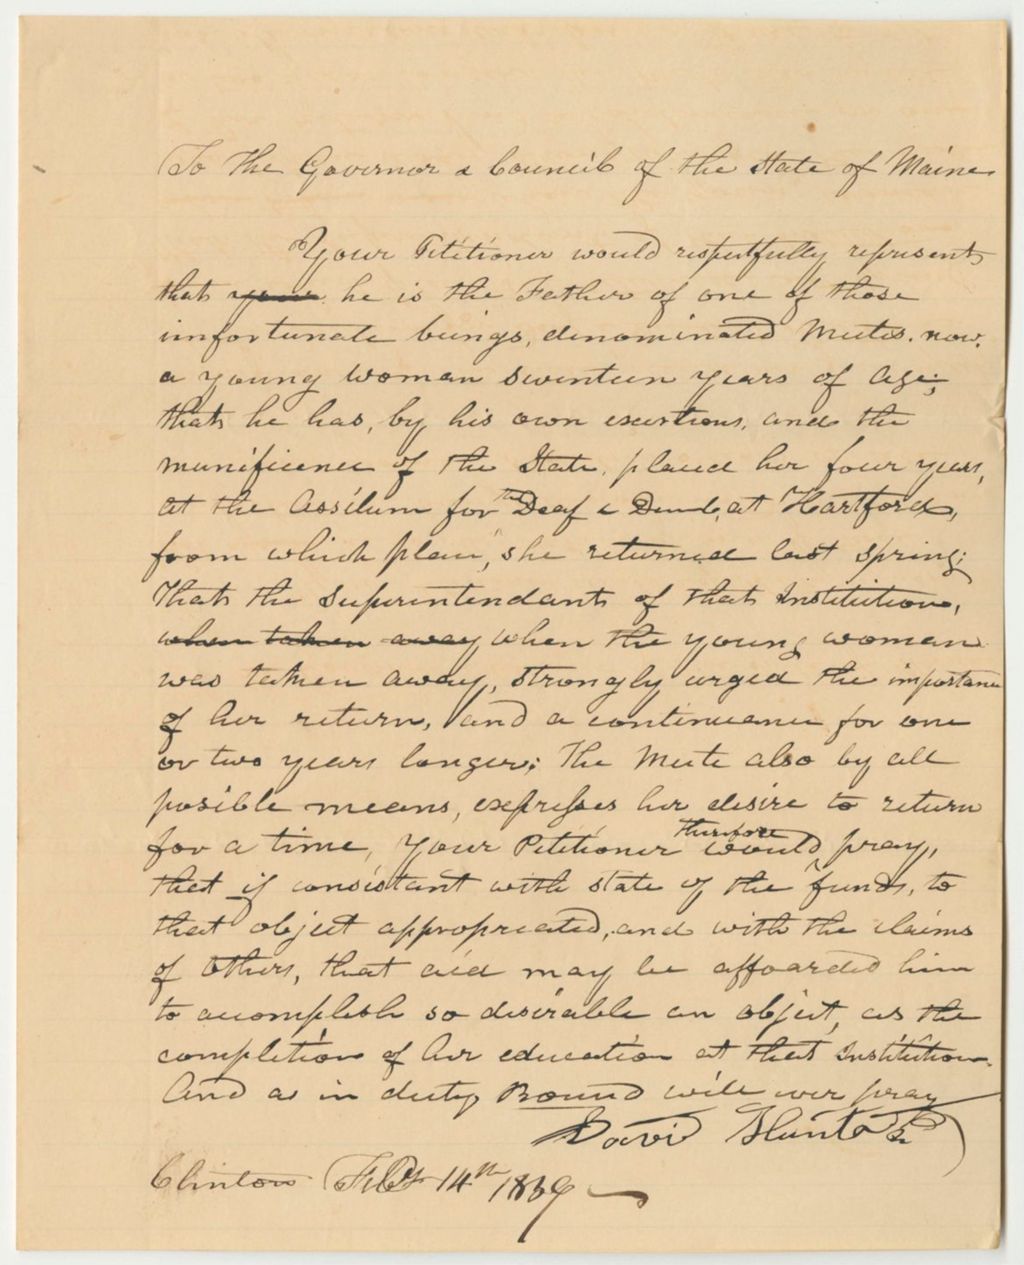 To the Governor & Council of the State of Maine
Your Petitioner would respectfully represent
that your he is the Father of one of those
unfortunate beings, denominated Mutes. now.
a young woman seventeen years of age;
that he has, by his own exertions, and the
munificence of the State, placed her four years,
at the Assilum for the Deaf & Dumb, at Hartford,
from which place, she returned last spring;
That the Superintendants of that Institution,
when taken away when the young woman
was taken away, strongly urged the importance
of her return, and a continuance for one
or two years longer; The Mute also by all
posible means, expresses her desire to return
for a time, Your Petitioner therefore would pray,
that if consistant with state of the funds, to
that object appropreated, and with the claims
of others, that aid may be affoarded him
to accomplish so desirable an object, as the
completion of her education at that Institution.
And as in duty Bound will ever pray
David Hunter
Clinton Feby 14th 1839